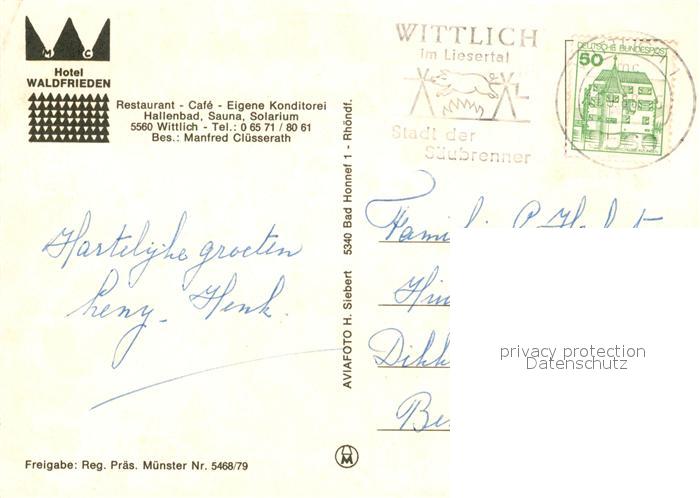 M C
Hotel
WALDFRIEDEN
Restaurant - Café - Eigene Konditorei
Hallenbad, Sauna, Solarium
5560 Wittlich - Tel.: 0 65 71 / 80 61
Bes.: Manfred Clüsserath
Hartelijke groeten
Heny - Henk.
Freigabe: Reg. Präs. Münster Nr. 5468/79
AVIAFOTO H. Siebert 5340 Bad Honnef 1 - Rhöndf.
M
WITTLICH
im Liesertal
Stadt der
Säubrenner
DEUTSCHE BUNDESPOST
50
privacy protection
Datenschutz